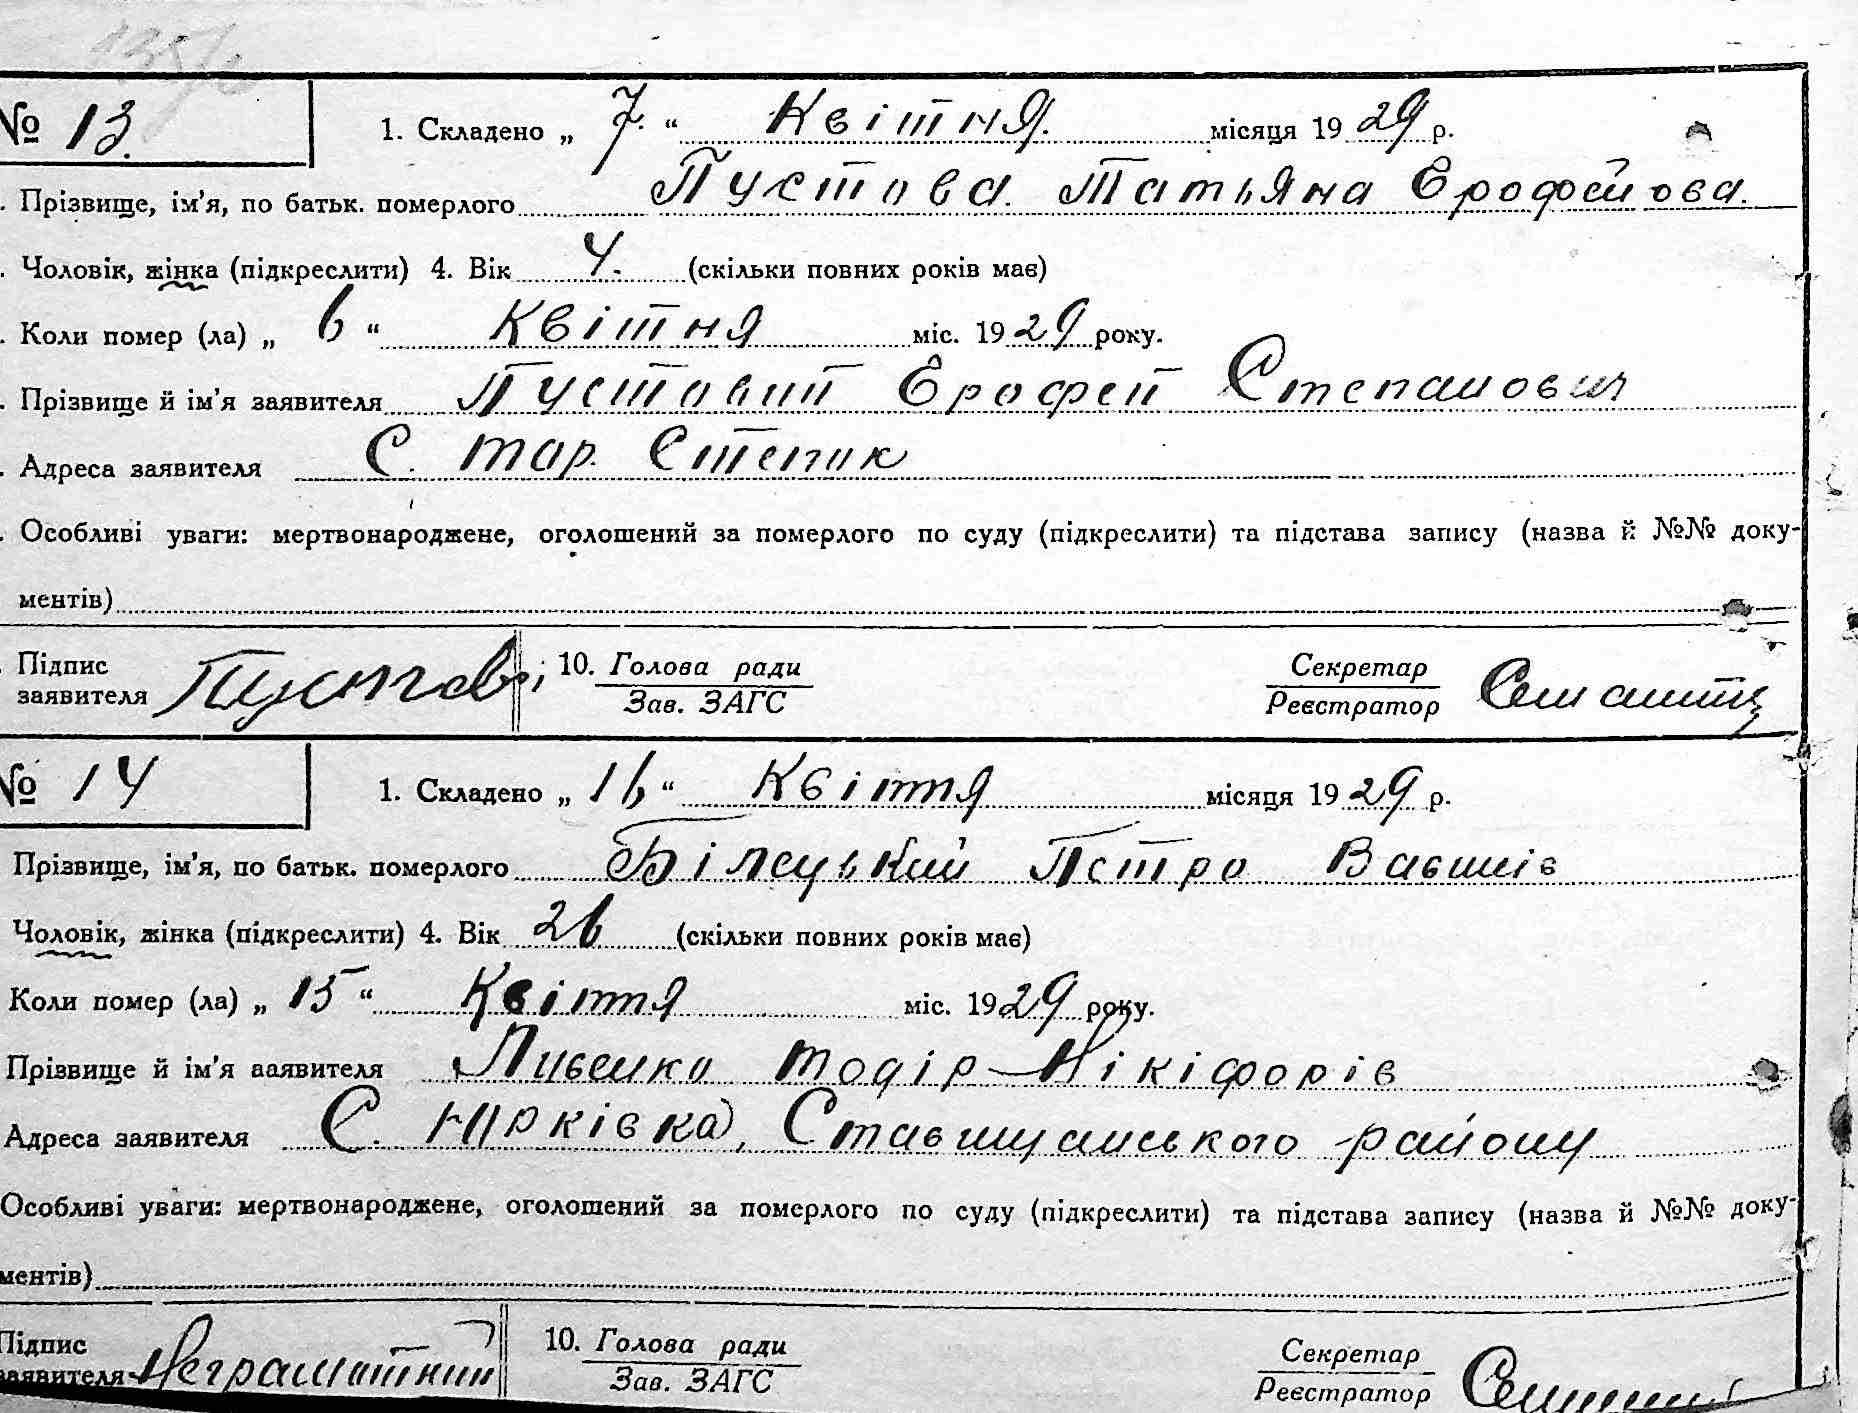 № 13. 1. Складено „ 7. “ Квітня. місяця 1929 р.
. Прізвище, ім'я, по батьк. померлого Пустова. Татьяна Єрофейова.
. Чоловік, жінка (підкреслити) 4. Вік 4. (скільки повних років має)
. Коли помер (ла) „ 6 “ Квітня міс. 1929 року.
. Прізвище й ім'я заявителя Пустовий Єрофей Степанович
. Адреса заявителя С. тар. Степок
. Особливі уваги: мертвонароджене, оголошений за померлого по суду (підкреслити) та підстава запису (назва й №№ доку-
ментів)
. Підпис 10. Голова ради Секретар
заявителя Пустов Зав. ЗАГС Реєстратор
№ 14 1. Складено „ 16 “ Квіття місяця 1929 р.
Прізвище, ім'я, по батьк. померлого Білецький Петро
Чоловік, жінка (підкреслити) 4. Вік 26 (скільки повних років має)
Коли помер (ла) „ 15 “ Квіття міс. 1929 року.
Прізвище й ім'я заявителя Тодір Нікіфорів
Адреса заявителя С. Юрківка, Ставищанського району
Особливі уваги: мертвонароджене, оголошений за померлого по суду (підкреслити) та підстава запису (назва й №№ доку-
ментів)
Підпис 10. Голова ради Секретар
заявителя Неграмотний Зав. ЗАГС Реєстратор